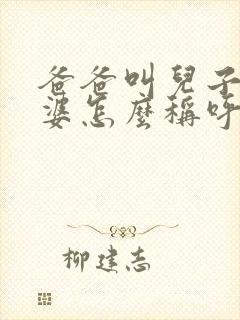 爸爸叫兒子
婆怎麼稱呼
柳建志